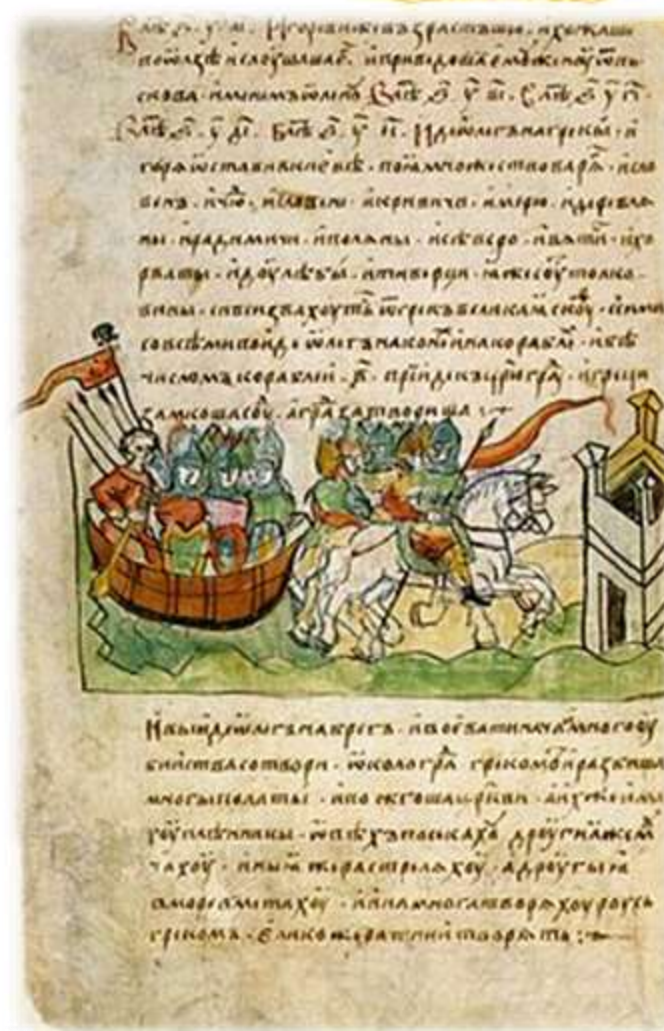 Игореви же възрастъшю. и хожаше
по ѡлзѣ и слоушаше є҃. и приведоша ємоу женоу ѿ пь
скова. именемъ ѡленоу В лѣⷮ ҂ѕ҃ у҃ в҃і. В лѣⷮ ҂ѕ҃ у҃ г҃і.
В лѣⷮ ҂ѕ҃. у҃ д҃і. В лѣⷮ ҂ѕ҃. у҃ є҃і. Иде ѡлегъ на греки. и
горѧ ѡстави в киевѣ. поꙗ множество варѧⷢ. и сло
венъ. и чюⷣ. и словене. и кривичи. и мерю. и деревлѧ
ны. и радимичи. и полѧны. и сѣверо. и вѧтичи. и хо
рваты. и доулѣбы. и тиверци. ꙗже соуть толко
вины. си вси звахоуть ѿ грекъ великаꙗ скоуⷴ. с сими
со всѣми поиде ѡлегъ на конеⷯ и на кораблѣⷯ. и бѣ
числомъ кораблеи. в҃. прїиде къ црюграⷣ. и греци
замкоша соуⷣ. а граⷣ затвориша
И выиде ѡлегъ на брегъ. и воевати нача. и много оу
биства сотвори. ѡколо граⷣ грекомъ. и разбиша
многы полаты. и пожгоша цркви. а ихже има
хоу плѣнникы. ѡвѣхъ посекахоу. дроугиа же моу
чахоу. иныа же растрелѧхоу. а дроугыа
в море вметахоу. и ина многа творѧхоу роусь
грекомъ. елико же ратнии творѧть